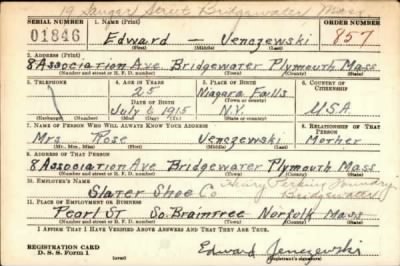 19 Sanger Street Bridgewater Mass
SERIAL NUMBER 1. NAME (Print) ORDER NUMBER
01846 Edward — Jenczewski 857
(First) (Middle) (Last)
2. ADDRESS (Print)
8 Association Ave Bridgewater Plymouth Mass
(Number and street or R. F. D. number) (Town) (County) (State)
3. TELEPHONE 4. AGE IN YEARS 5. PLACE OF BIRTH 6. COUNTRY OF CITIZENSHIP
25 Niagara Falls
DATE OF BIRTH (Town or county)
July 6, 1915 N.Y. U.S.A
(Exchange) (Number) (Mo.) (Day) (Yr.) (State or country)
7. NAME OF PERSON WHO WILL ALWAYS KNOW YOUR ADDRESS 8. RELATIONSHIP OF THAT PERSON
Mrs Rose Jenczewski Mother
(Mr., Mrs., Miss) (First) (Middle) (Last)
9. ADDRESS OF THAT PERSON
8 Association Ave Bridgewater Plymouth Mass
(Number and street or R. F. D. number) (Town) (County) (State)
10. EMPLOYER'S NAME Henry Perkins Foundry
Slater Shoe Co Bridgewater
11. PLACE OF EMPLOYMENT OR BUSINESS
Pearl St So. Braintree Norfolk Mass
(Number and street or R. F. D. number) (Town) (County) (State)
I AFFIRM THAT I HAVE VERIFIED ABOVE ANSWERS AND THAT THEY ARE TRUE.
REGISTRATION CARD
D. S. S. Form 1 Edward Jenczewski
(Registrant's signature)